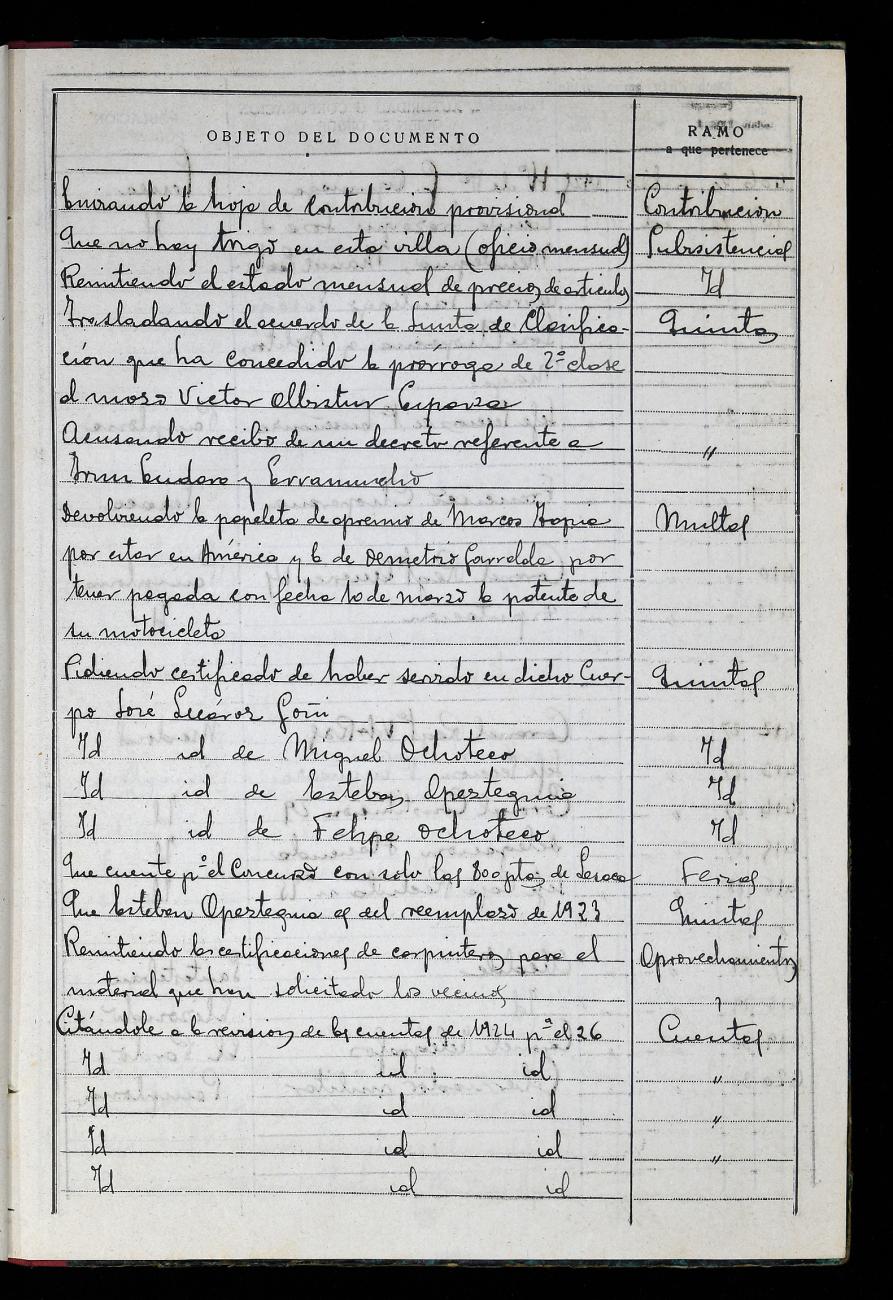 OBJETO DEL DOCUMENTO RAMO
a que pertenece
Enviando la hoja de contribución provisional Contribucion
Que no hay trigo en esta villa (oficio mensual) Subsistencias
Remitiendo el estado mensual de precios de articulos Id
Trasladando el acuerdo de la Junta de Clasifica- Quintas
ción que ha concedido la prórroga de 2ª clase
al mozo Victor Olbistur Esparza
Acusando recibo de un decreto referente a "
Irun Endara y Erramuncho
Devolviendo la papeleta de apremio de Marcos Tapia Multas
por estar en América y la de Demetrio Garralda por
tener pagada con fecha 10 de marzo la patente de
su motocicleta
Pidiendo certificado de haber servido en dicho Cuer- Quintas
po José Lucároz Goñi
Id id de Miguel Ochoteco Id
Id id de Esteban Oparteguia Id
Id id de Felipe Ochoteco Id
Que cuente pª el Concurso con solo las 800 ptas de Lesaca Ferias
Que Esteban Oparteguia es del reemplazo de 1923 Quintas
Remitiendo las certificaciones de carpinteros para el Aprovechamientos
material que han solicitado los vecinos ?
Citándole a la revision de las cuentas de 1924 pª el 26 Cuentas
Id id id "
Id id id "
Id id id "
Id id id